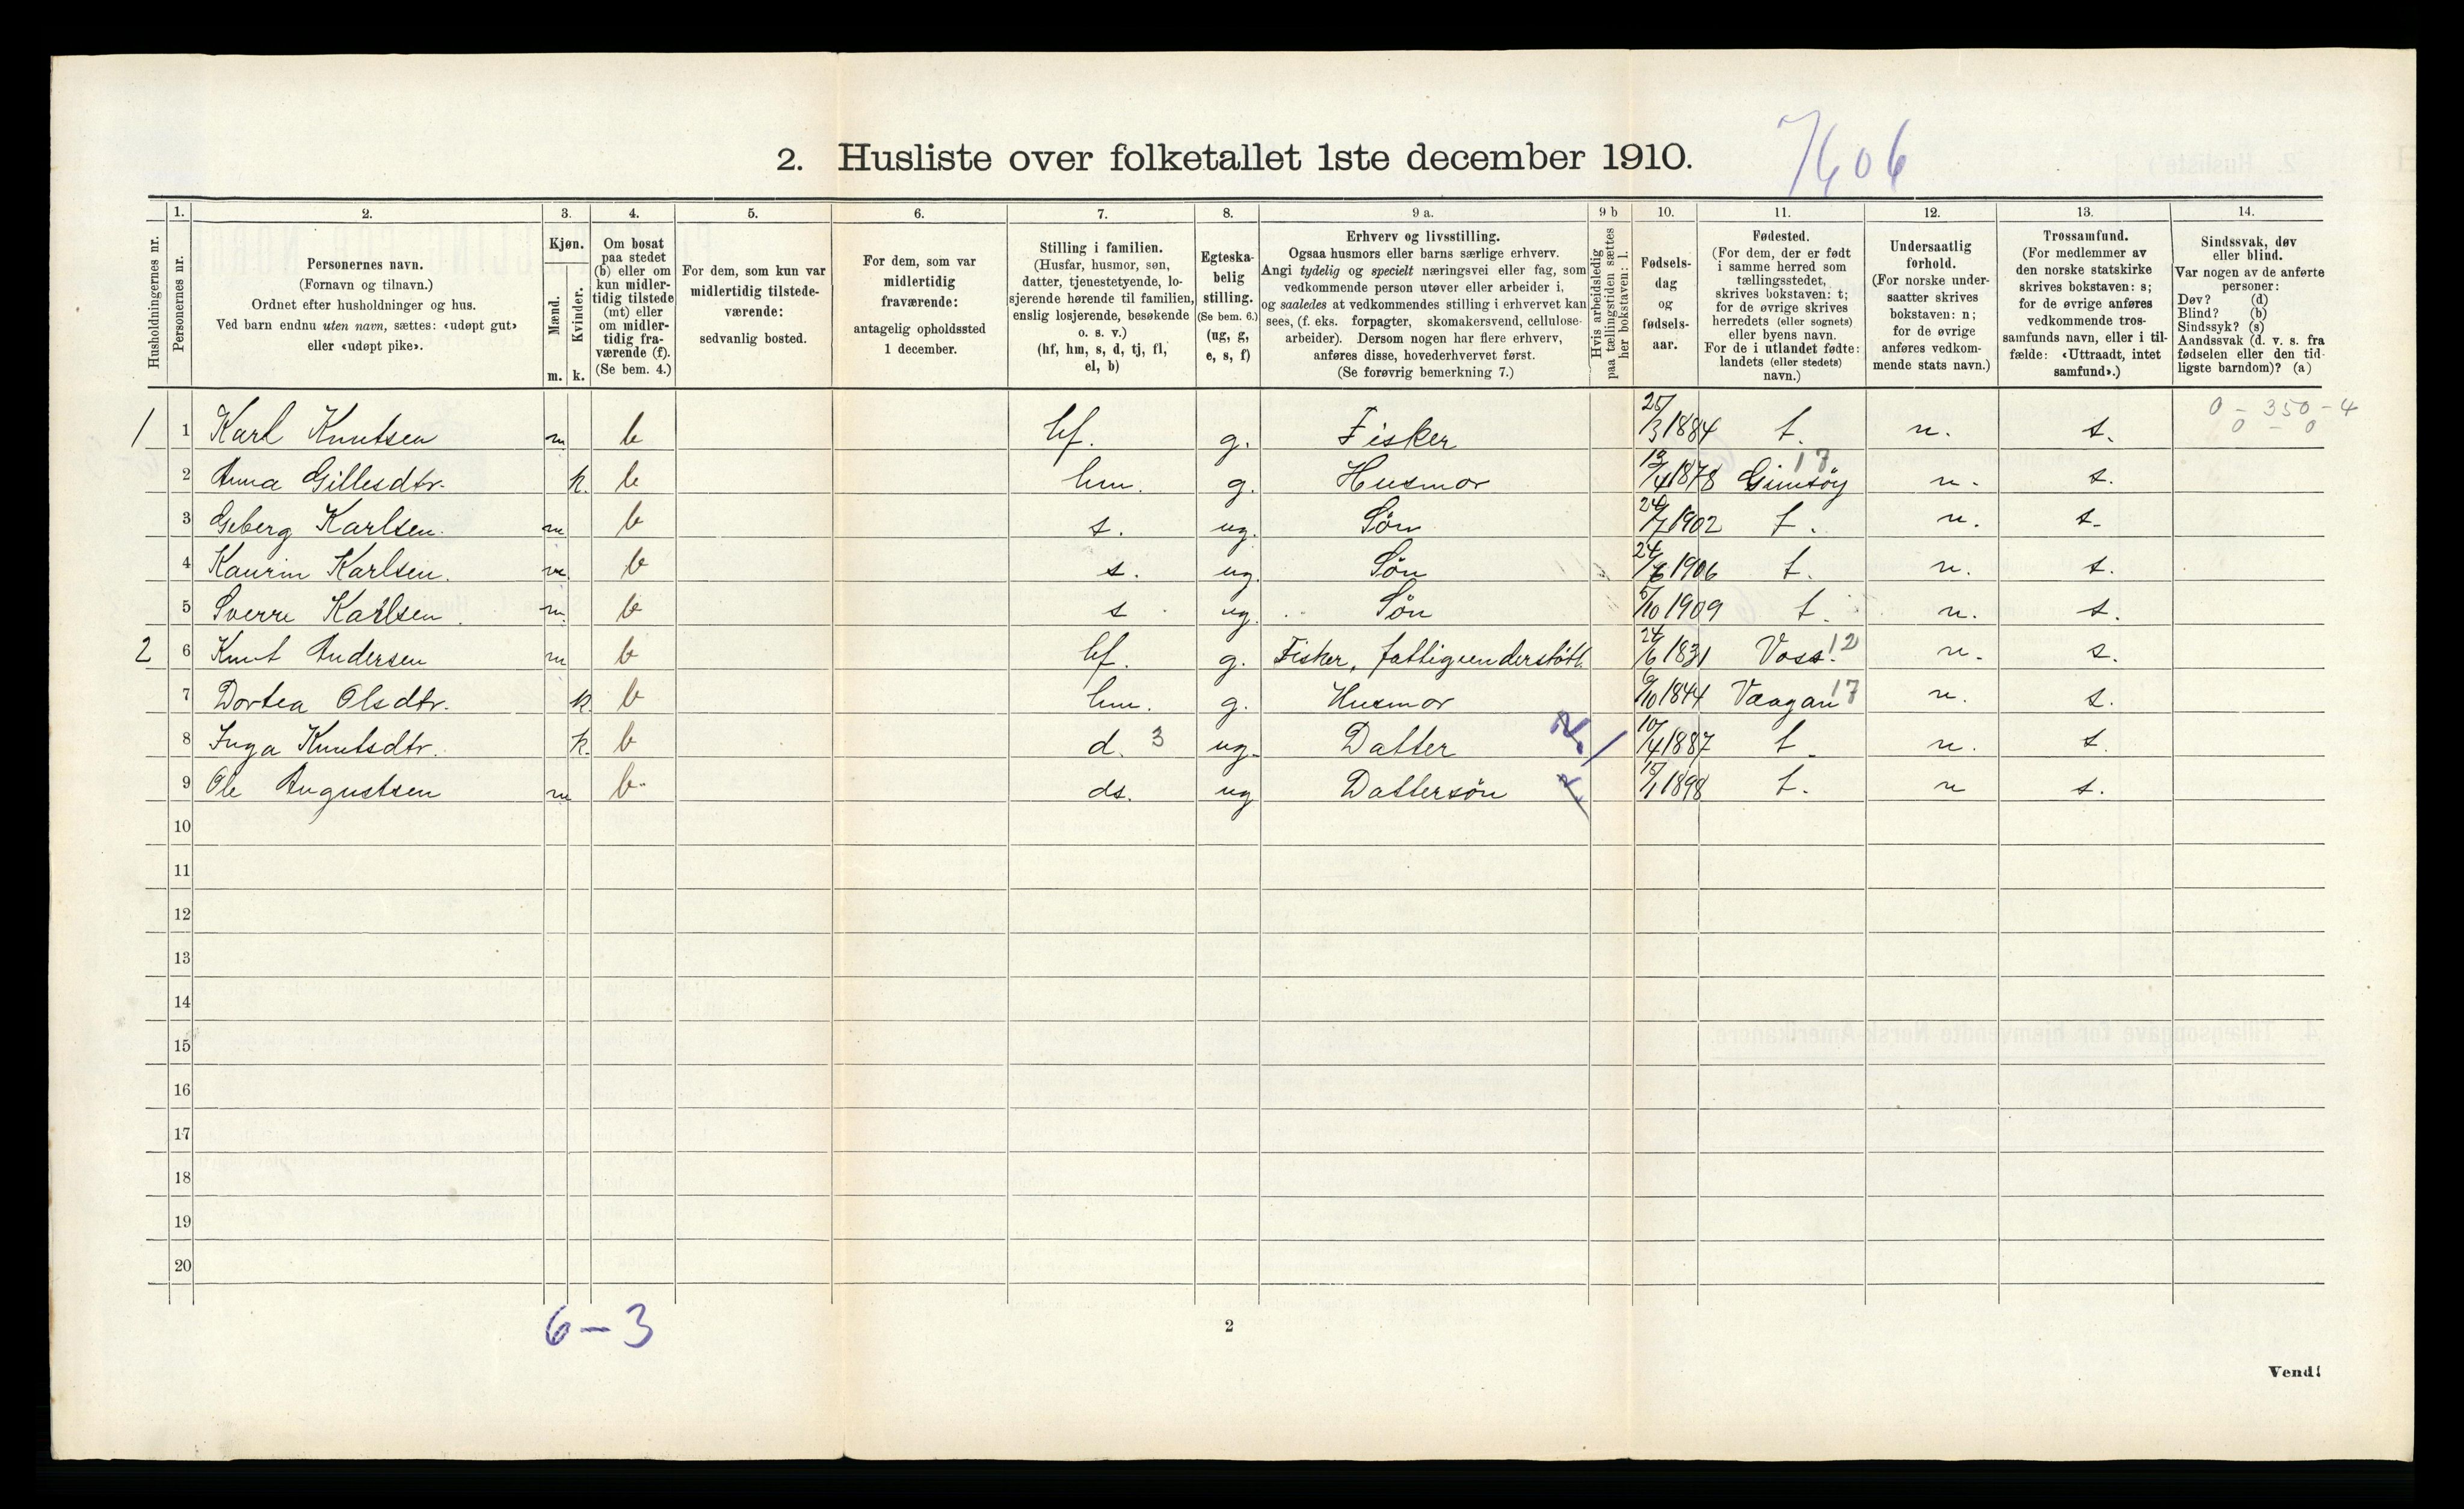 7606
2. Husliste over folketallet 1ste december 1910.
Husholdningernes nr.
1. Personernes nr.
2. Personernes navn.
(Fornavn og tilnavn.)
Ordnet efter husholdninger og hus.
Ved barn endnu uten navn, sættes: «udøpt gut»
eller «udøpt pike».
3. Kjøn.
Mænd. Kvinder.
m. k.
4. Om bosat
paa stedet
(b) eller om
kun midler-
tidig tilstede
(mt) eller
om midler-
tidig fra-
værende (f).
(Se bem. 4.)
5. For dem, som kun var
midlertidig tilstede-
værende:
sedvanlig bosted.
6. For dem, som var
midlertidig
fraværende:
antagelig opholdssted
1 december.
7. Stilling i familien.
(Husfar, husmor, søn,
datter, tjenestetyende, lo-
sjerende hørende til familien,
enslig losjerende, besøkende
o. s. v.)
(hf, hm, s, d, tj, fl,
el, b)
8. Egteska-
belig
stilling.
(Se bem. 6.)
(ug, g,
e, s, f)
9 a. Erhverv og livsstilling.
Ogsaa husmors eller barns særlige erhverv.
Angi tydelig og specielt næringsvei eller fag, som
vedkommende person utøver eller arbeider i,
og saaledes at vedkommendes stilling i erhvervet kan
sees, (f. eks. forpagter, skomakersvend, cellulose-
arbeider). Dersom nogen har flere erhverv,
anføres disse, hovederhvervet først.
(Se forøvrig bemerkning 7.)
9 b Hvis arbeidsledig
paa tællingstiden sættes
her bokstaven: l.
10. Fødsels-
dag
og
fødsels-
aar.
11. Fødested.
(For dem, der er født
i samme herred som
tællingsstedet,
skrives bokstaven: t;
for de øvrige skrives
herredets (eller sognets)
eller byens navn.
For de i utlandet fødte:
landets (eller stedets)
navn.)
12. Undersaatlig
forhold.
(For norske under-
saatter skrives
bokstaven: n;
for de øvrige
anføres vedkom-
mende stats navn.)
13. Trossamfund.
(For medlemmer av
den norske statskirke
skrives bokstaven: s;
for de øvrige anføres
vedkommende tros-
samfunds navn, eller i til-
fælde: «Uttraadt, intet
samfund».)
14. Sindssvak, døv
eller blind.
Var nogen av de anførte
personer:
Døv? (d)
Blind? (b)
Sindssyk? (s)
Aandssvak (d. v. s. fra
fødselen eller den tid-
ligste barndom)? (a)
0 - 350 - 4
0 - 0
1 1 Karl Knutsen m b hf. g. Fisker 25/3 1884 t. n. s.
2 Anna Gillesdtr. k. b hm. g. Husmor 13/4 1878 Gimsöy 17 n. s.
3 Geberg Karlsen. m b s. ug. Sön 24/7 1902 t. n. s.
4 Kaurin Karlsen. m. b s. ug. Sön 24/6 1906 t. n. s.
5 Sverre Karlsen. m. b s ug. Sön 5/10 1909 t. n. s.
2 6 Knut Andersen m b hf. g. Fisker, fattigunderstött. 24/6 1831 Voss. 12 n. s.
7 Dortea Olsdtr. k. b hm. g. Husmor 9/10 1844 Vaagan 17 n. s.
8 Inga Knutsdtr. k. b d. 3 ug. Datter 10/4 1887 t. n. s.
9 Ole Augustsen m b. ds. ug Dattersön 15/1 1898 t. n s.
10
11
12
13
14
15
16
17
18
19
20
6-3
2
Vend!